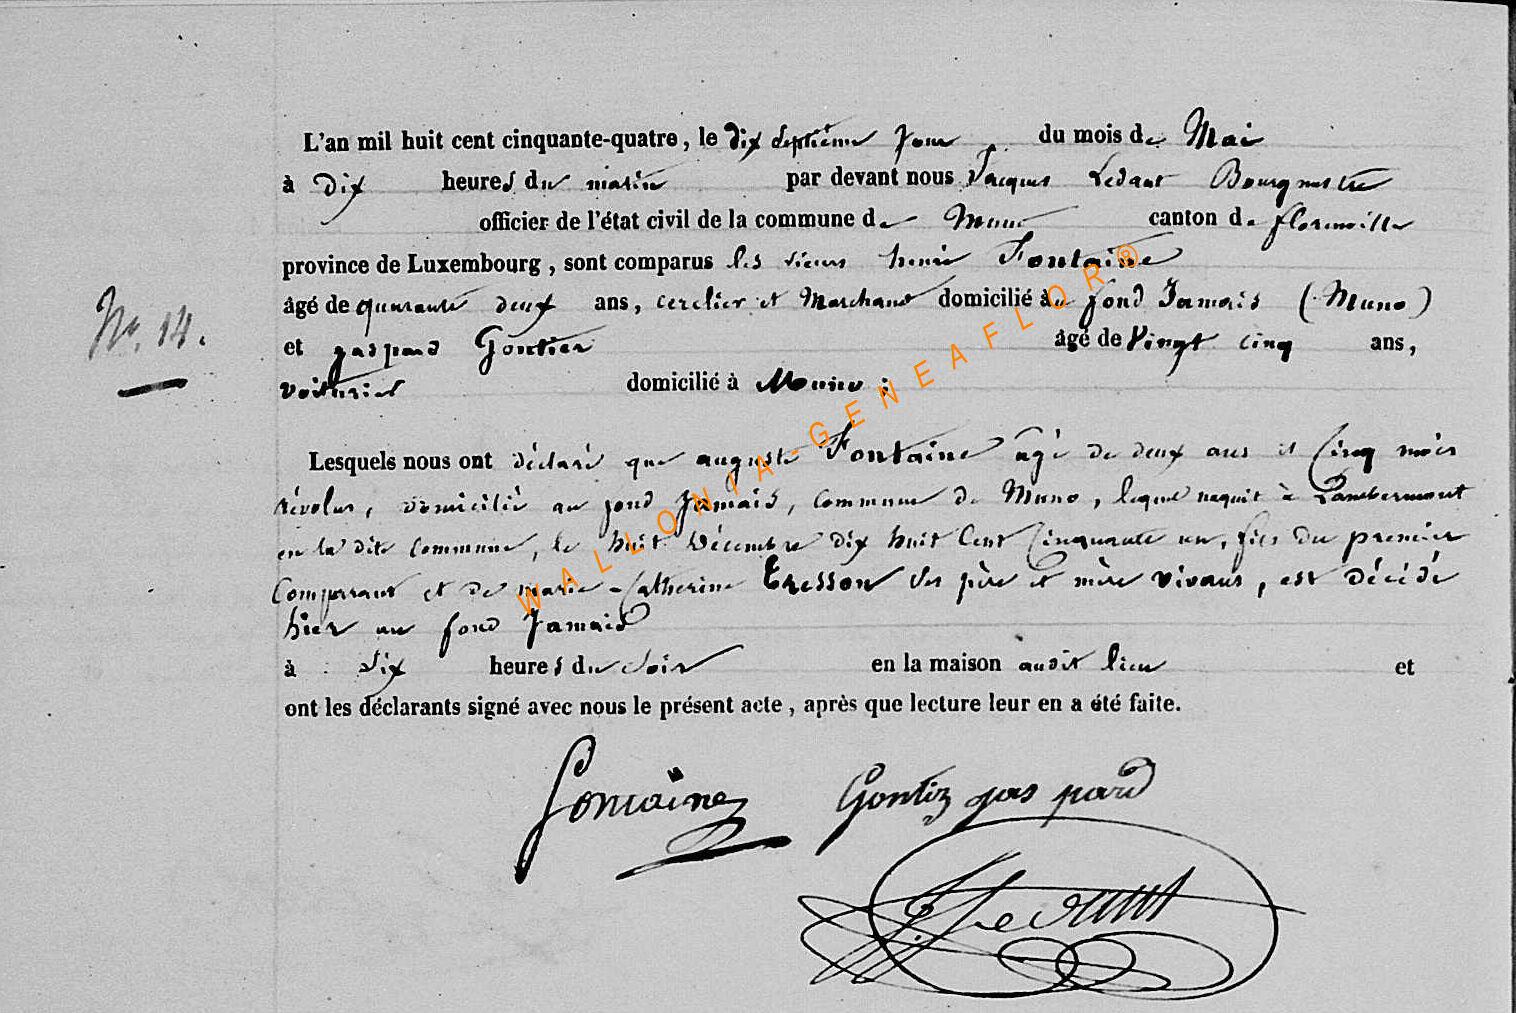 L'an mil huit cent cinquante-quatre, le dix septième jour du mois de Mai
à dix heures du matin par devant nous Jacques Ledant Bourgmestre
officier de l'état civil de la commune de Muno canton de florenville
province de Luxembourg, sont comparus les sieurs henri Fontaine
âgé de quarante deux ans, cerclier et Marchand domicilié au fond Jamais (Muno)
N°. 14.
et gaspard Gontier âgé de Vingt cinq ans,
voiturier domicilié à Muno ;
Lesquels nous ont déclaré que auguste Fontaine âgé de deux ans et Cinq mois
révolus, domicilié au fond Jamais, commune de Muno, lequel naquit à Lambermont
en la dite commune, le huit Décembre dix huit Cent Cinquante un, fils du premier
Comparant et de marie-Catherine Tresson ses père et mère vivans, est décédé
hier au fond Jamais
à six heures du soir en la maison audit lieu et
ont les déclarants signé avec nous le présent acte, après que lecture leur en a été faite.
Fontaine Gontiez gaspard
J Ledant
WALLONIA-GENEAFLOR®